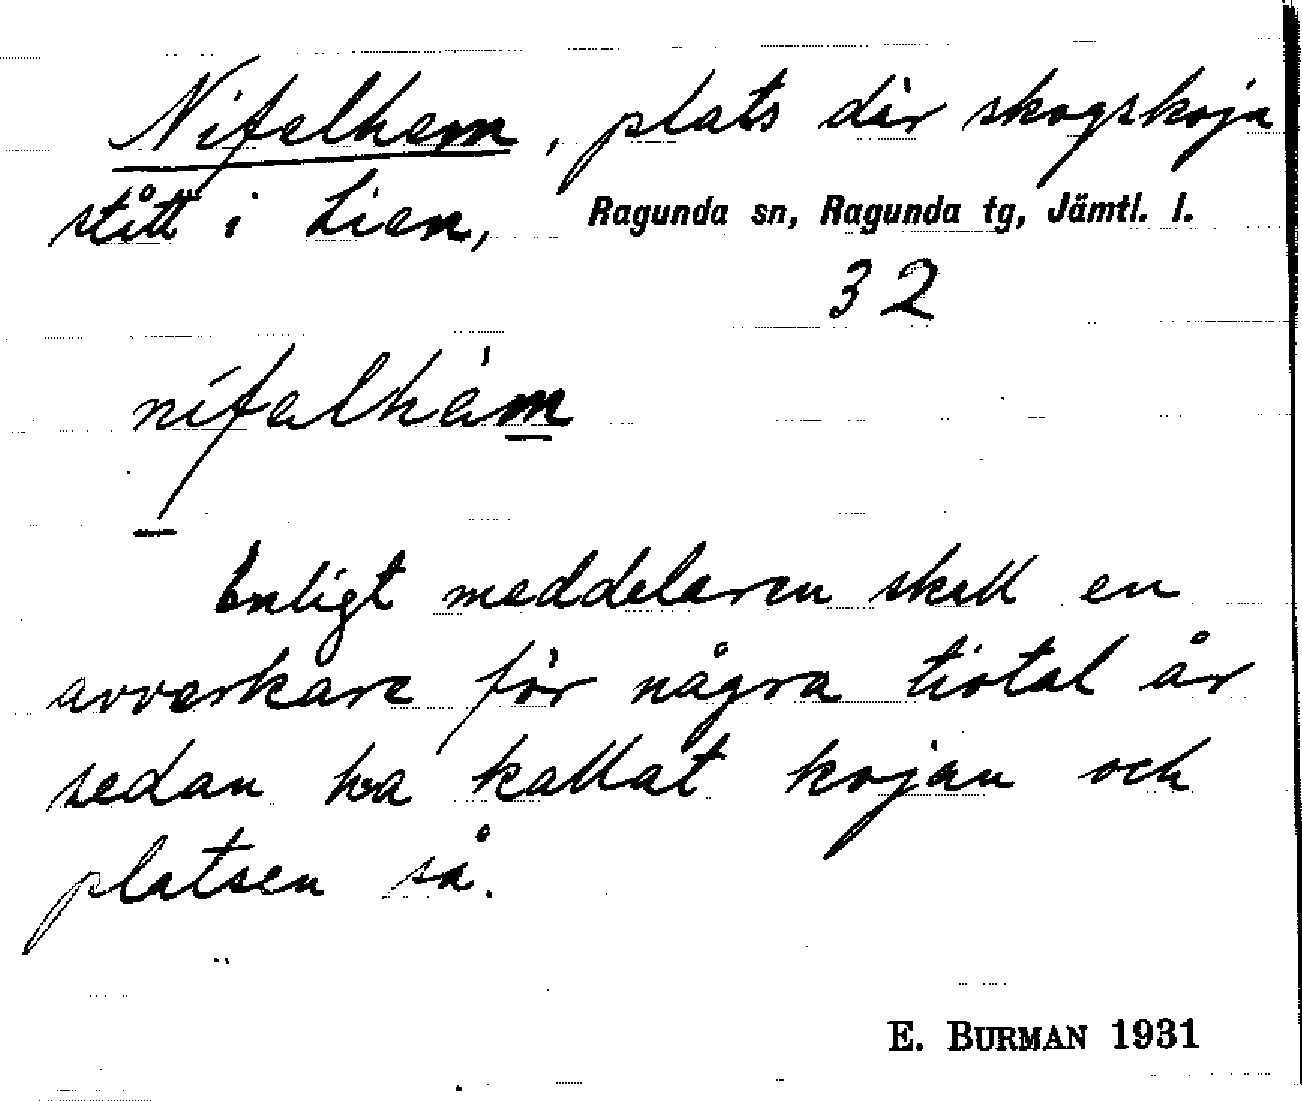 Nifelhem, plats där skogskoja
stått i Lien, Ragunda sn, Ragunda tg, Jämtl. l.
32
nifalhäm
Enligt meddelaren skall en
avverkare för några tiotal år
sedan ha kallat kojan och
platsen så.
E. BURMAN 1931